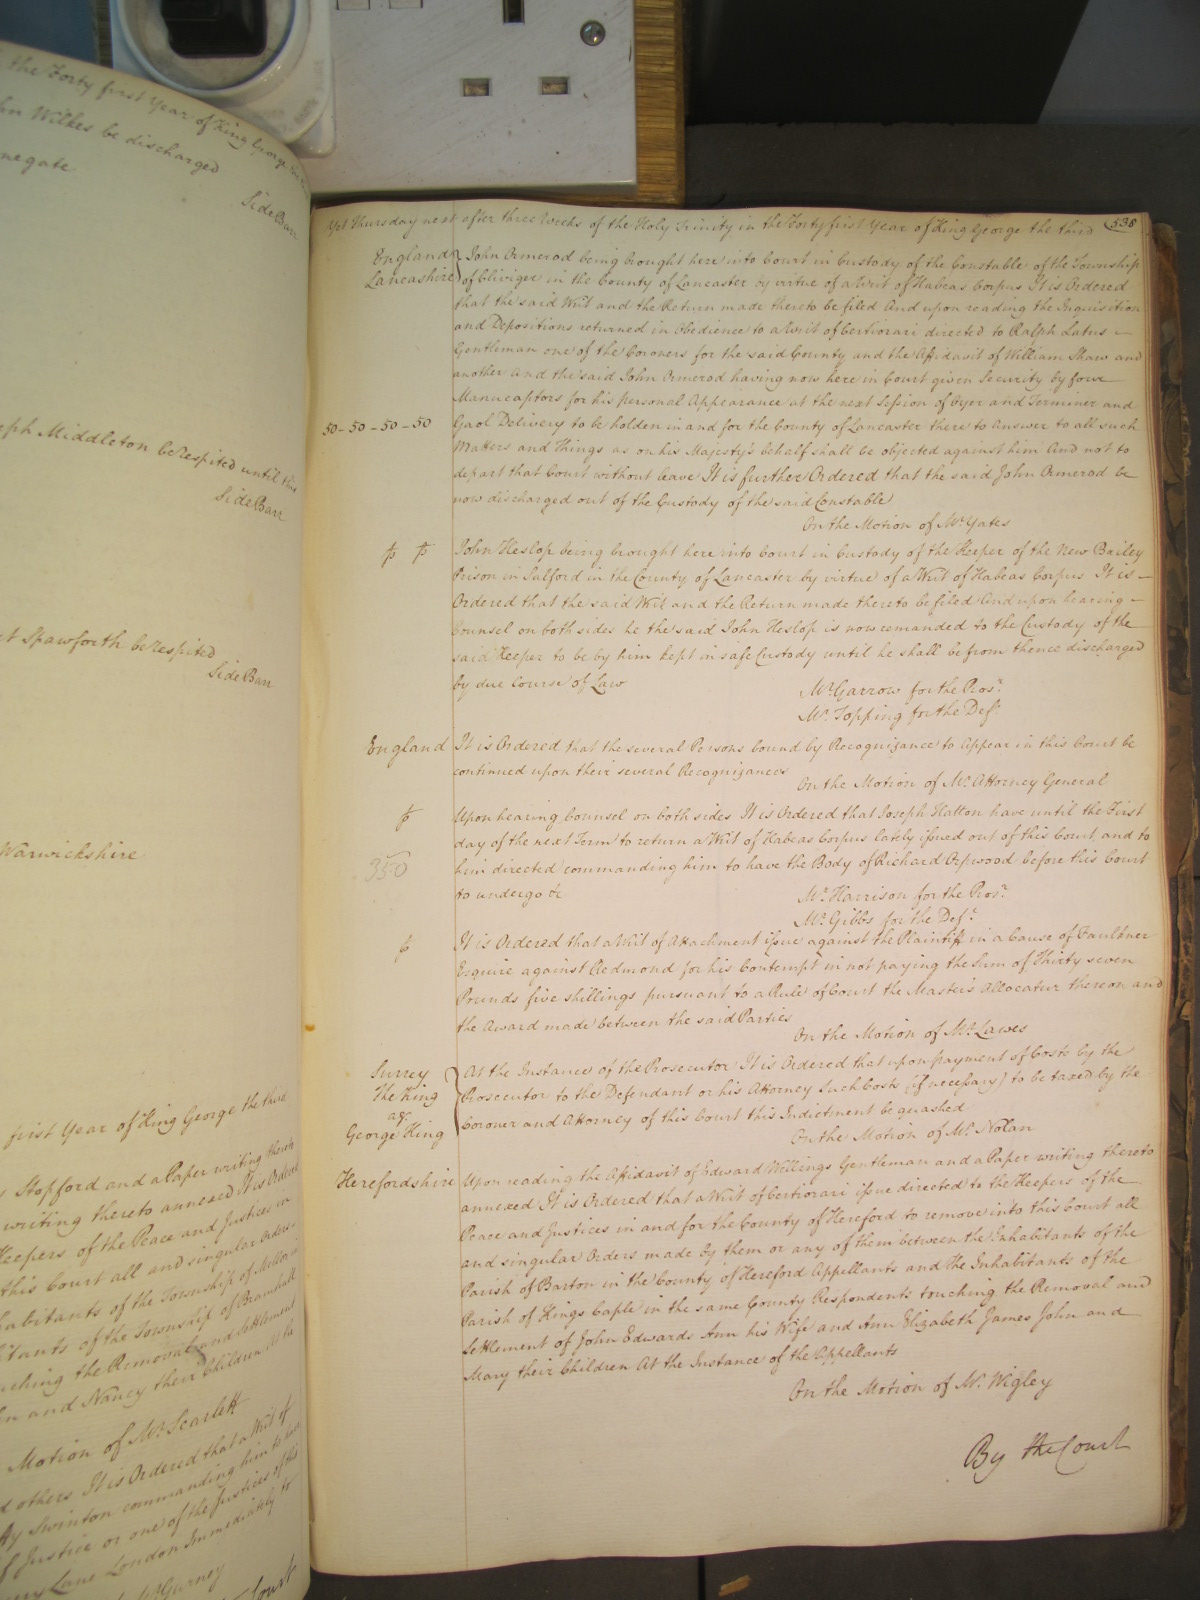 the Forty first Year of King George the
John Wilkes be discharged
negate
Side Barr
Middleton be respited until this
Side Barr
Spawforth be respited
Side Barr
Warwickshire
first Year of King George the third
Stopford and a Paper writing thereto
writing thereto annexed It is Ordered
Keepers of the Peace and Justices in
this Court all and singular Orders
habitants of the Township of
itants of the Township of Bramhall
uching the Removal and Settlement
and Nancy their Children at the
Motion of Mr. Scarlett
d others It is Ordered that a Writ of
Swinton commanding him to have
Justice or one of the Justices of this
Lane London Immediately to
Mr. Gurney
Court
Yet Thursday next after three Weeks of the Holy Trinity in the Forty first Year of King George the third 538
England John Ormerod being brought here into Court in Custody of the Constable of the Township
Lancashire of Cliviger in the County of Lancaster by virtue of a Writ of Habeas Corpus It is Ordered
that the said Writ and the Return made thereto be filed And upon reading the Inquisition
and Depositions returned in obedience to a Writ of Certiorari directed to Ralph Latus
Gentleman one of the Coroners for the said County and the Affidavit of William Shaw and
another And the said John Ormerod having now here in Court given Security by four
Manucaptors for his personal Appearance at the next Session of Oyer and Terminer and
50-50-50-50 Gaol Delivery to be holden in and for the County of Lancaster there to Answer to all such
Matters and Things as on his Majesty's behalf shall be objected against him And not to
depart that Court without leave It is further Ordered that the said John Ormerod be
now discharged out of the Custody of the said Constable
On the Motion of Mr. Yates
John Heslop being brought here into Court in Custody of the Keeper of the New Bailey
Prison in Salford in the County of Lancaster by virtue of a Writ of Habeas Corpus It is
Ordered that the said Writ and the Return made thereto be filed And upon hearing
Counsel on both sides he the said John Heslop is now remanded to the Custody of the
said Keeper to be by him kept in safe Custody until he shall be from thence discharged
by due Course of Law
Mr. Garrow for the Pros.r
Mr. Topping for the Def.t
England It is Ordered that the several Persons bound by Recognizance to Appear in this Court be
continued upon their several Recognizances
On the Motion of Mr. Attorney General
Upon hearing Counsel on both sides It is Ordered that Joseph Hatton have until the First
day of the next Term to return a Writ of Habeas Corpus lately issued out of this Court and to
350 him directed commanding him to have the Body of Richard Arpwood before this Court
to undergo &c
Mr. Harrison for the Pros.r
Mr. Gibbs for the Def.t
It is Ordered that a Writ of Attachment issue against the Plaintiff in a Cause of Faulkner
Esquire against Redmond for his Contempt in not paying the Sum of Thirty seven
Pounds five shillings pursuant to a Rule of Court the Master's Allocatur thereon and
the Award made between the said Parties
On the Motion of Mr. Lawes
Surrey At the Instance of the Prosecutor It is Ordered that upon payment of Costs by the
The King Prosecutor to the Defendant or his Attorney Such Costs (if necessary) to be taxed by the
agt. Coroner and Attorney of this Court this Indictment be quashed
George King
On the Motion of Mr. Nolan
Herefordshire Upon reading the Affidavit of Edward Wellings Gentleman and a Paper writing thereto
annexed It is Ordered that a Writ of Certiorari issue directed to the Keepers of the
Peace and Justices in and for the County of Hereford to remove into this Court all
and singular Orders made by them or any of them between the Inhabitants of the
Parish of Barton in the County of Hereford Appellants and the Inhabitants of the
Parish of Kings Caple in the same County Respondents touching the Removal and
Settlement of John Edwards Ann his Wife and Ann Elizabeth James John and
Mary their Children At the Instance of the Appellants
On the Motion of Mr. Wigley
By the Court